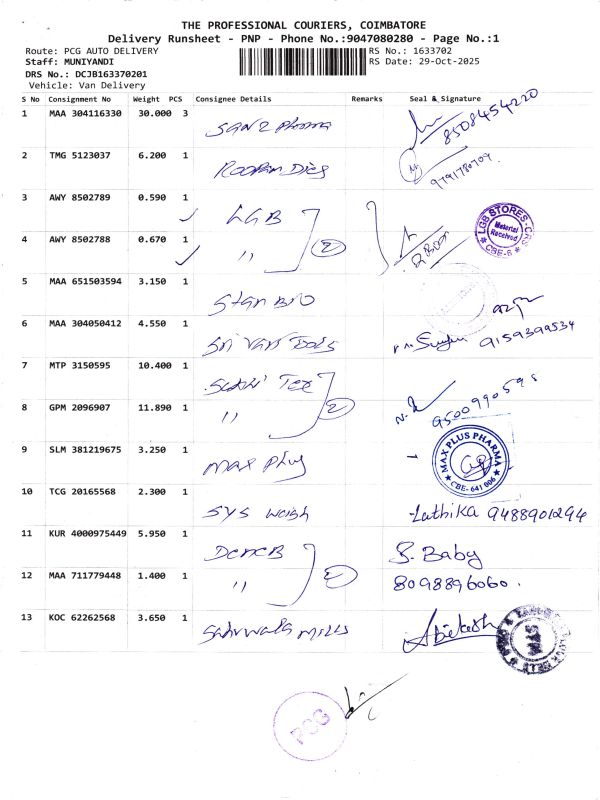 THE PROFESSIONAL COURIERS, COIMBATORE
Delivery Runsheet - PNP - Phone No.:9047080280 - Page No.:1
Route: PCG AUTO DELIVERY
RS No.: 1633702
Staff: MUNIYANDI
RS Date: 29-Oct-2025
DRS No.: DCJB163370201
Vehicle: Van Delivery
S No Consignment No Weight PCS Consignee Details Remarks Seal & Signature
1 MAA 304116330 30.000 3 8508454220
2 TMG 5123037 6.200 1
3 AWY 8502789 0.590 1 LGB
LGB STORES-CRS
Material
Received
CBE-6
4 AWY 8502788 0.670 1 " 2
5 MAA 651503594 3.150 1
6 MAA 304050412 4.550 1 Sri 9159399534
7 MTP 3150595 10.400 1 Tex
8 GPM 2096907 11.890 1 " 2 9500990595
9 SLM 381219675 3.250 1 max plus
MAX PLUS PHARMA
CBE-641 006
10 TCG 20165568 2.300 1 SYS Weigh Lathika 9488901294
11 KUR 4000975449 5.950 1 S. Baby
12 MAA 711779448 1.400 1 " 2 8098896060.
13 KOC 62262568 3.650 1 mills
PCG